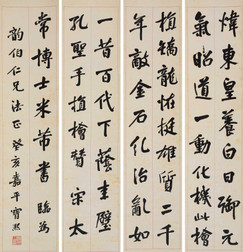 煒東皇養白日御元
氣昭道一動化機此檜
植矯龍怪挺雄質二千
年敵金石化治亂如
一昔百代下蔭圭璧
孔聖手植檜贊宋太
常博士米芾書 臨為
韵伯仁兄法正 癸亥嘉平寶熙